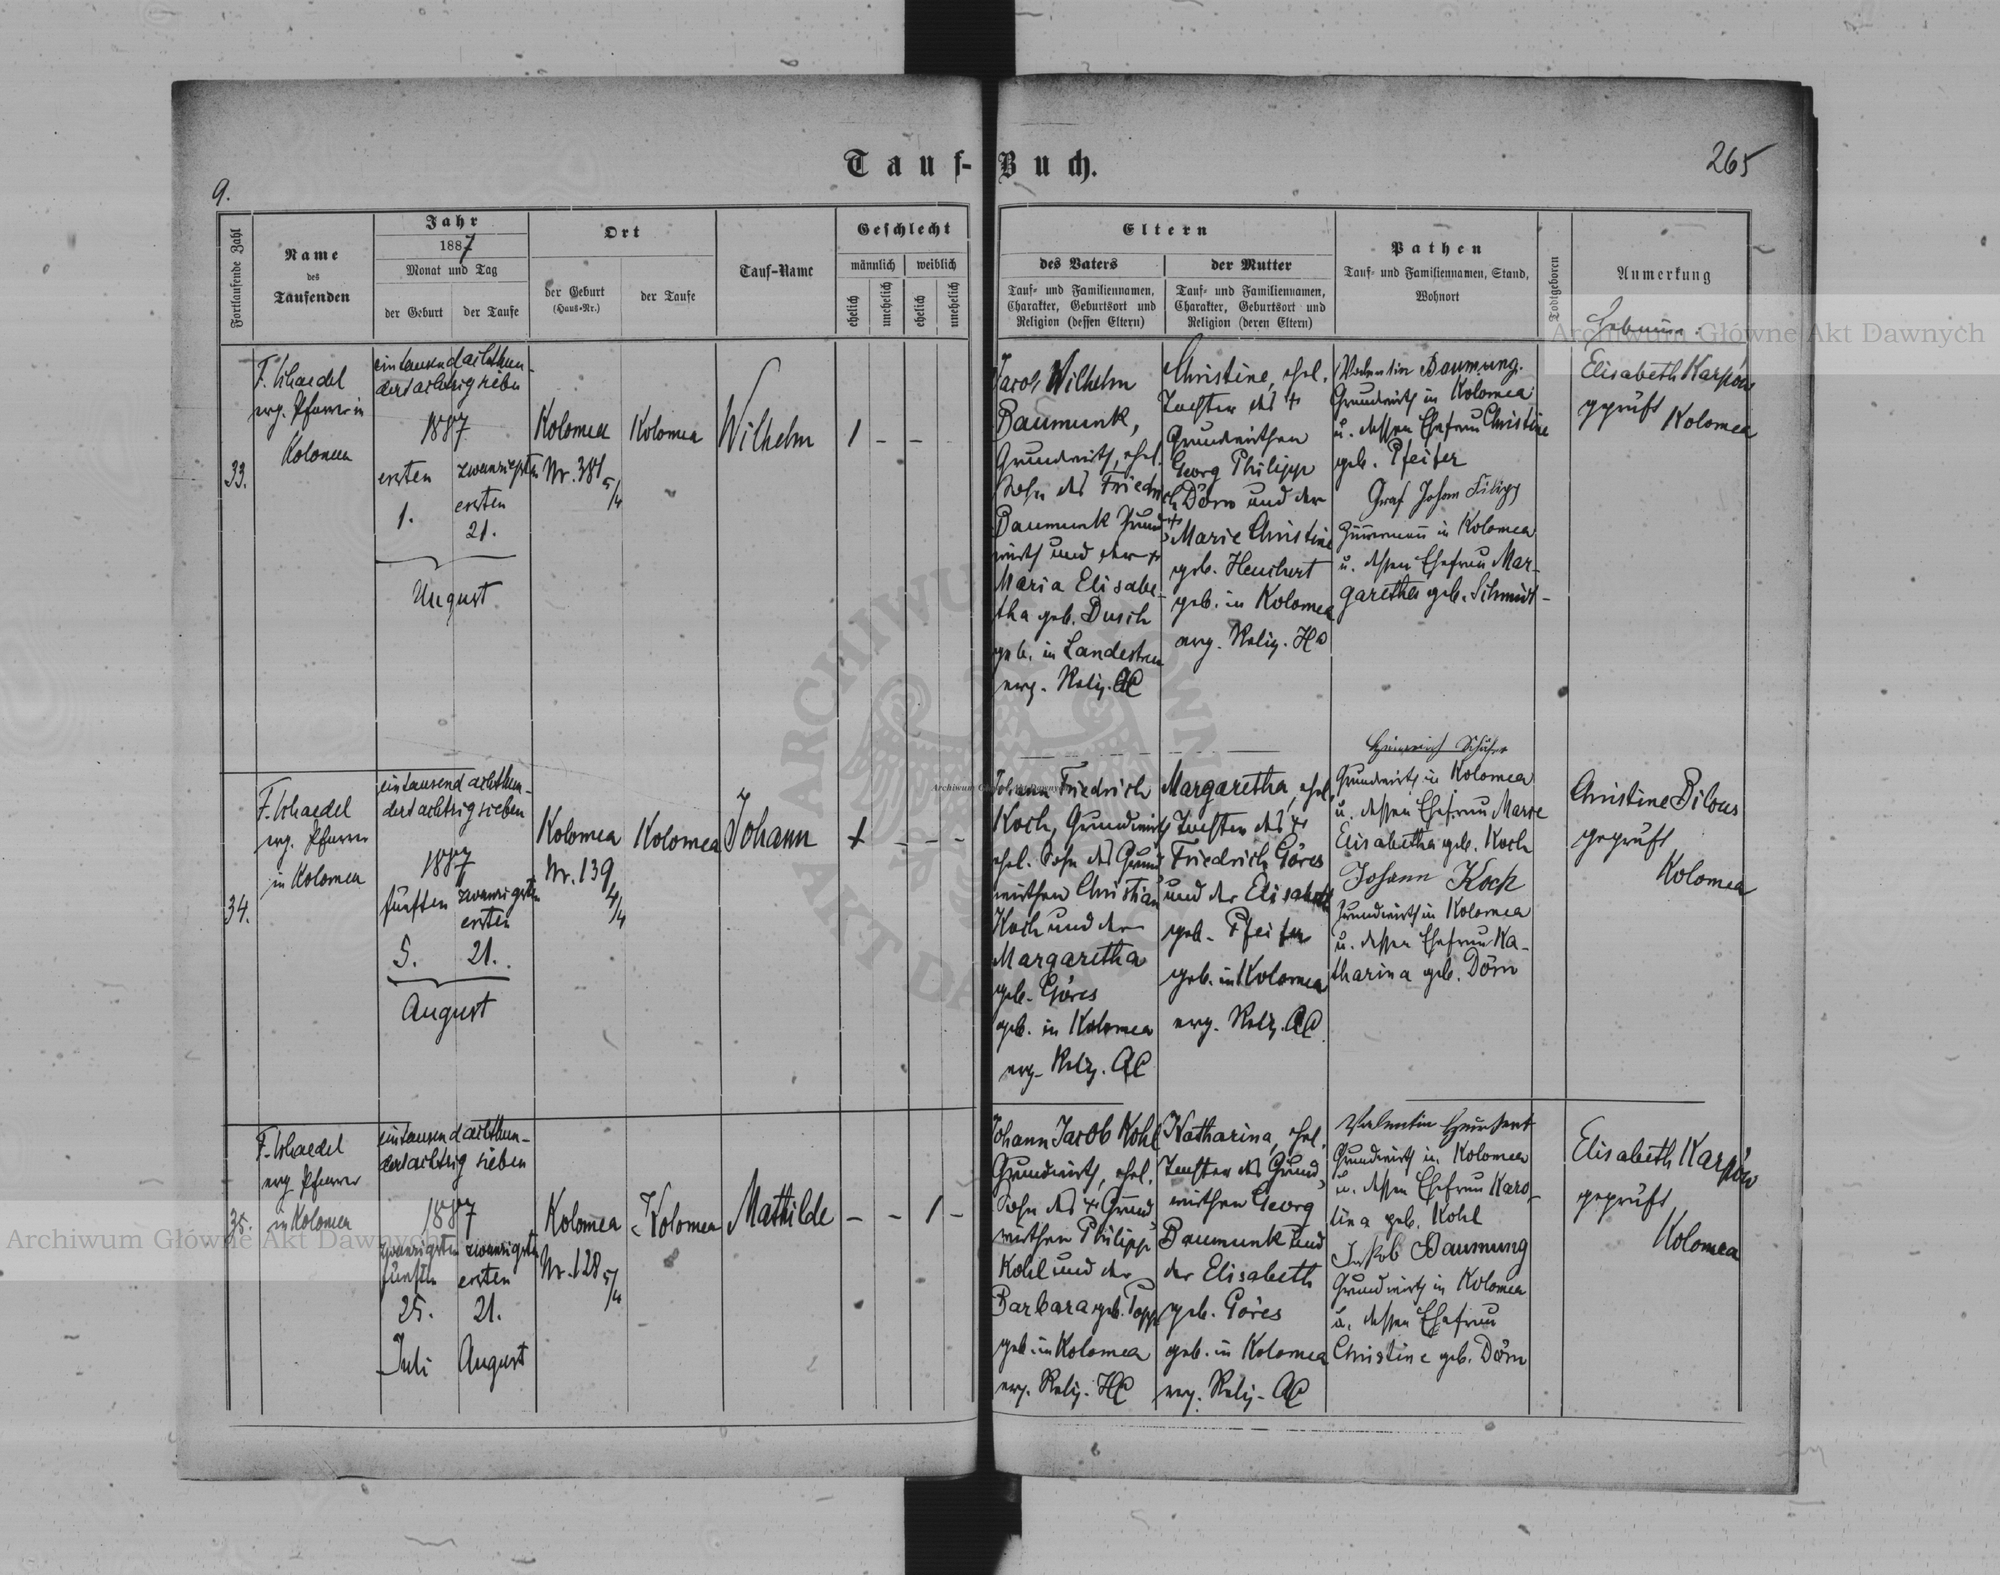 Tauf-Buch.
9.
265
Fortlaufende Zahl
Name
des
Taufenden
Jahr
1887
Monat und Tag
der Geburt
der Taufe
Ort
der Geburt
(Haus-Nr.)
der Taufe
Tauf-Name
Geschlecht
männlich
weiblich
ehelich
unehelich
ehelich
unehelich
Eltern
des Vaters
Tauf- und Familiennamen,
Charakter, Geburtsort und
Religion (dessen Eltern)
der Mutter
Tauf- und Familiennamen,
Charakter, Geburtsort und
Religion (deren Eltern)
Pathen
Tauf- und Familiennamen, Stand,
Wohnort
Todtgeboren
Anmerkung
33.
F. Schaedel
evg. Pfarrer in
Kolomea
eintausend achthun-
dertachtzig sieben
1887
ersten
1.
zwanzigsten
ersten
21.
August
Kolomea
Nr. 381
5/4
Kolomea
Wilhelm
1 - -
Jacob Wilhelm
Baumunk,
Grundwirth, ehel.
Sohn des Friedrich
Baumunk Grund-
wirth und der +
Maria Elisabe-
tha geb. Dusch
geb. in Landestreu
evg. Relig. AC
Christine, ehel.
Tochter des +
Grundwirthen
Georg Philipp
Dörn und der
+ Marie Christine
geb. Heuchert
geb. in Kolomea
evg. Relig. HC
Valentin Baumung.
Grundwirth in Kolomea
u. dessen Ehefrau Christine
geb. Pfeifer
Graf Johann Filipp
Zimmermann in Kolomea
u. dessen Ehefrau Mar-
garetha geb. Schmidt
Hebamme:
Elisabeth Karpów
geprüft
Kolomea
34.
F. Schaedel
evg. Pfarrer
in Kolomea
eintausend achthun-
dertachtzig sieben
1887
fünften
5.
zwanzigsten
ersten
21.
August
Kolomea
Nr. 139
4/4
Kolomea
Johann
1 - - -
Johann Friedrich
Koch, Grundwirth
ehel. Sohn des Grund-
wirthen Christian
Koch und der
Margaretha
geb. Göres
geb. in Kolomea
evg. Relig. AC
Margaretha, ehel.
Tochter des +
Friedrich Göres
und der Elisabeth
geb. Pfeifer
geb. in Kolomea
evg. Relig. AC
Heinrich Schäfer
Grundwirth in Kolomea
u. dessen Ehefrau Marie
Elisabetha geb. Koch
Johann Koch
Grundwirth in Kolomea
u. dessen Ehefrau Ka-
tharina geb. Dörn
Christine Bilous
geprüft
Kolomea
35.
F. Schaedel
evg Pfarrer
in Kolomea
eintausend achthun-
dertachtzig sieben
1887
zwanzigsten
fünften
25.
Juli
zwanzigsten
ersten
21.
August
Kolomea
Nr. 128
5/4
Kolomea
Mathilde
- - 1 -
Johann Jacob Kohl
Grundwirth, ehel.
Sohn des + Grund-
wirthen Philipp
Kohl und der
Barbara geb. Popp
geb. in Kolomea
evg. Relig. HC
Katharina, ehel.
Tochter des Grund-
wirthen Georg
Baumunk und
der Elisabeth
geb. Göres
geb. in Kolomea
evg. Relig. AC
Valentin Heuchert
Grundwirth in Kolomea
u. dessen Ehefrau Karo-
lina geb. Kohl
Jakob Baumung
Grundwirth in Kolomea
u. dessen Ehefrau
Christine geb. Dörn
Elisabeth Karpów
geprüft
Kolomea
Archiwum Główne Akt Dawnych
Archiwum Główne Akt Dawnych
Archiwum Główne Akt Dawnych